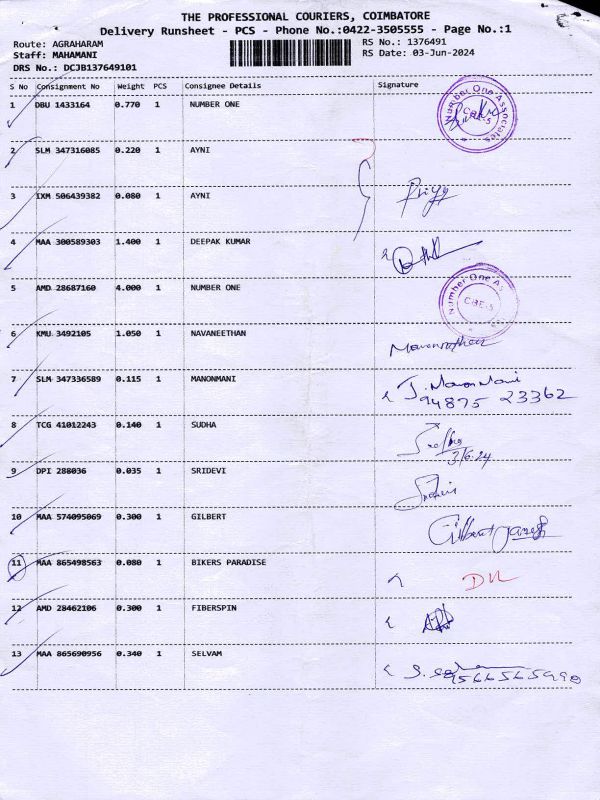 THE PROFESSIONAL COURIERS, COIMBATORE
Delivery Runsheet - PCS - Phone No.:0422-3505555 - Page No.:1
Route: AGRAHARAM RS No.: 1376491
Staff: MAHAMANI RS Date: 03-Jun-2024
DRS No.: DCJB137649101
S No Consignment No Weight PCS Consignee Details Signature
1 DBU 1433164 0.770 1 NUMBER ONE Number One Associates CBE-5
2 SLM 347316085 0.220 1 AYNI
3 IXM 506439382 0.080 1 AYNI Priya
4 MAA 300589303 1.400 1 DEEPAK KUMAR
5 AMD 28687160 4.000 1 NUMBER ONE Number One As CBE-5
6 KMU 3492105 1.050 1 NAVANEETHAN
7 SLM 347336589 0.115 1 MANONMANI J. Manon Mani
94875 23362
8 TCG 41012243 0.140 1 SUDHA Sudha
3/6.24
9 DPI 288036 0.035 1 SRIDEVI Sridevi
10 MAA 574095069 0.300 1 GILBERT Gilbert
11 MAA 865498563 0.080 1 BIKERS PARADISE
12 AMD 28462106 0.300 1 FIBERSPIN
13 MAA 865690956 0.340 1 SELVAM